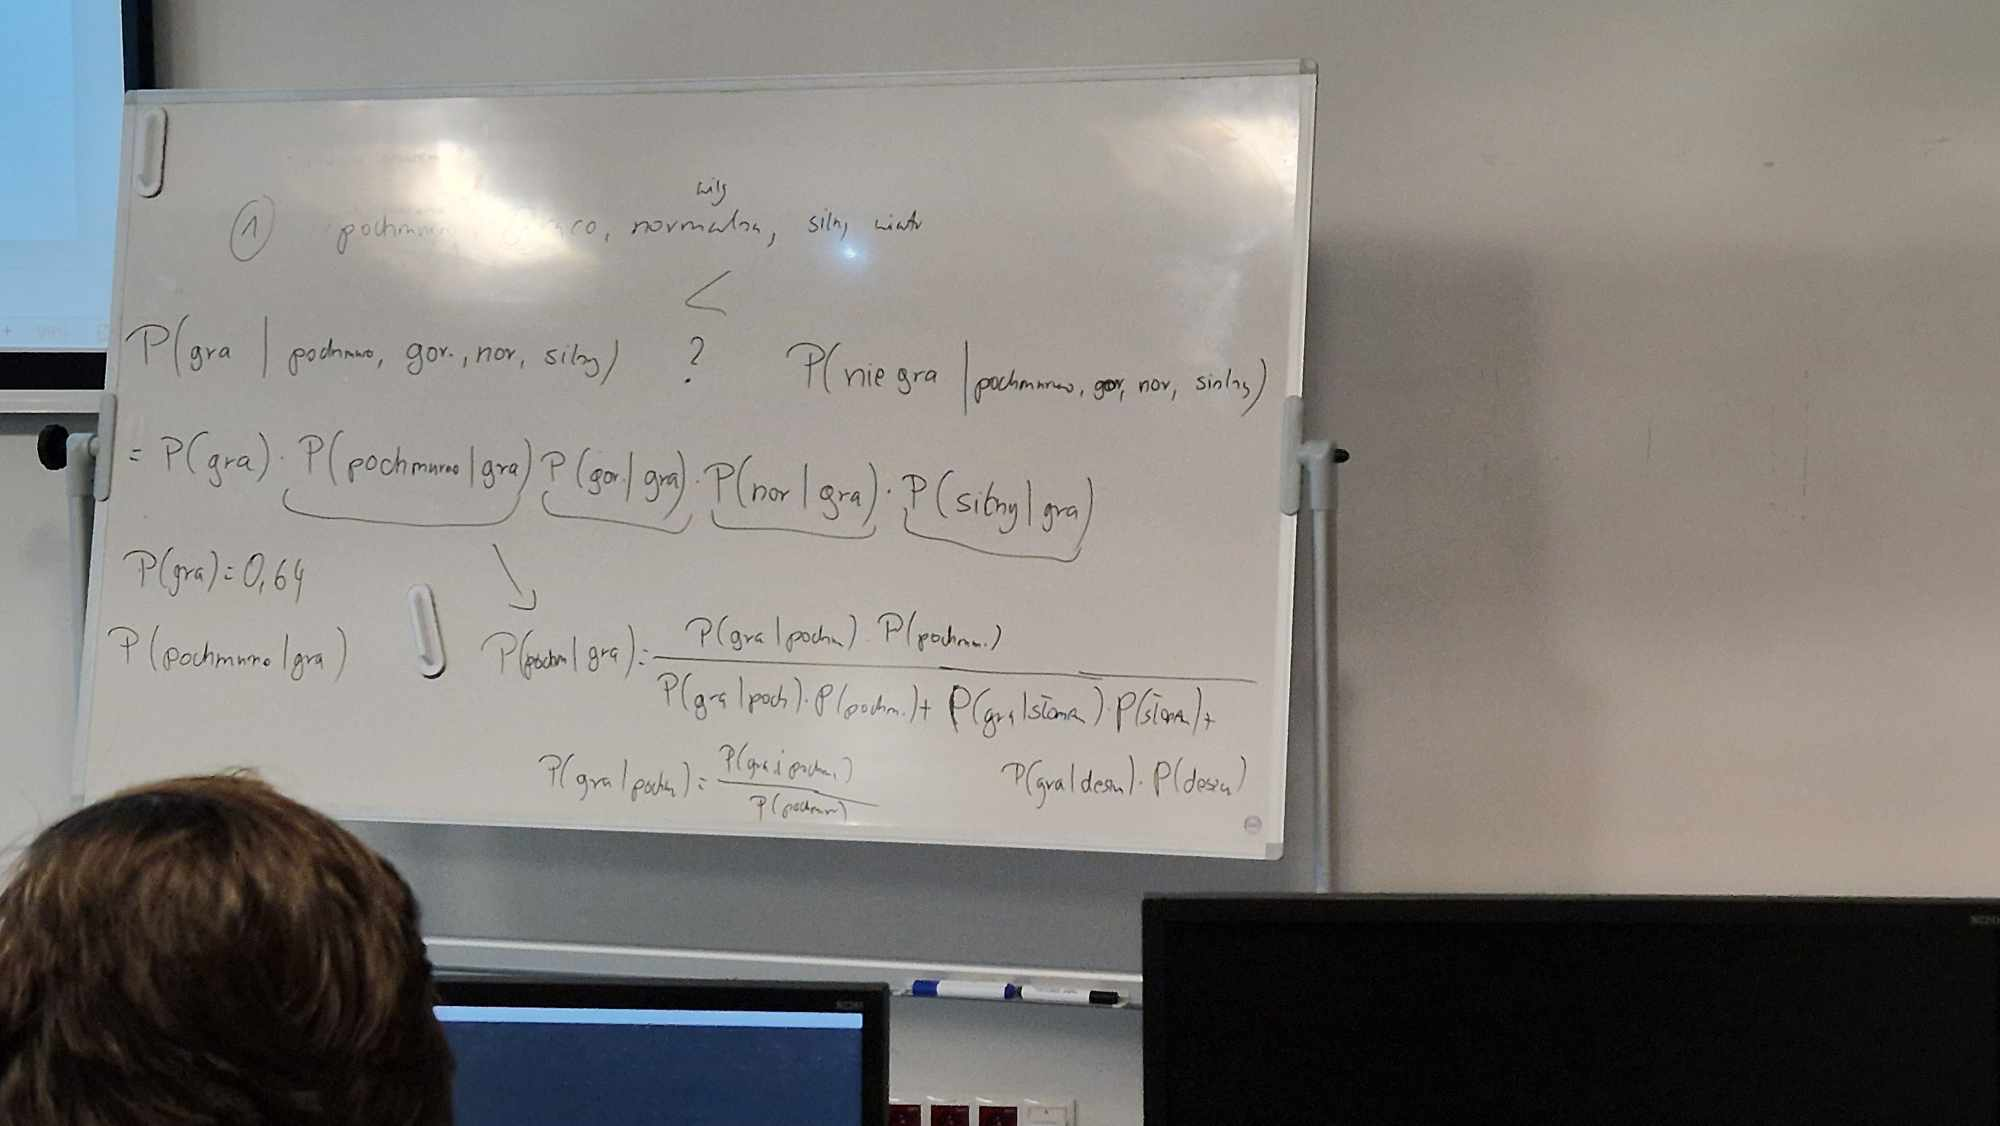 wilg
① pochmurno, gorąco, normalna, silny wiatr
<
P(gra | pochmurno, gor., nor, silny) ? P(nie gra | pochmurno, gor, nor, sinlny)
= P(gra) · P(pochmurno | gra) P(gor. | gra) · P(nor | gra) · P(silny | gra)
P(gra) = 0,64
P(pochmurno | gra)
P(pochm | gra) = P(gra | pochm) · P(pochm.)
P(gra | poch) · P(pochm.) + P(gra | słonen) · P(słonen) +
P(gra | deszu) · P(deszu)
P(gra | pochm) = P(gra i pochm.)
P(pochmur)